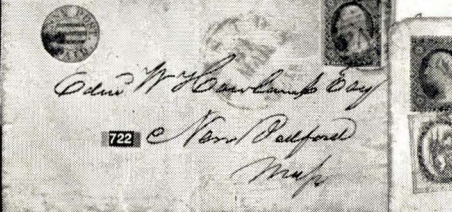 PAID
Edw W Howland Esq
722
New Bedford
Mass